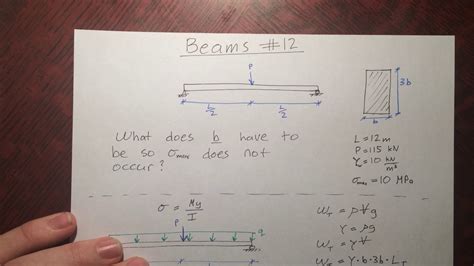 Beams #12
P
L/2 L/2
3b
b
What does b have to
be so σmax does not
occur?
L = 12 m
P = 115 kN
γ = 10 kN/m³
σmax = 10 MPa
σ = My/I
P
q
W_T = ρVg
γ = ρg
W_T = γV
W_T = γ·b·3b·L